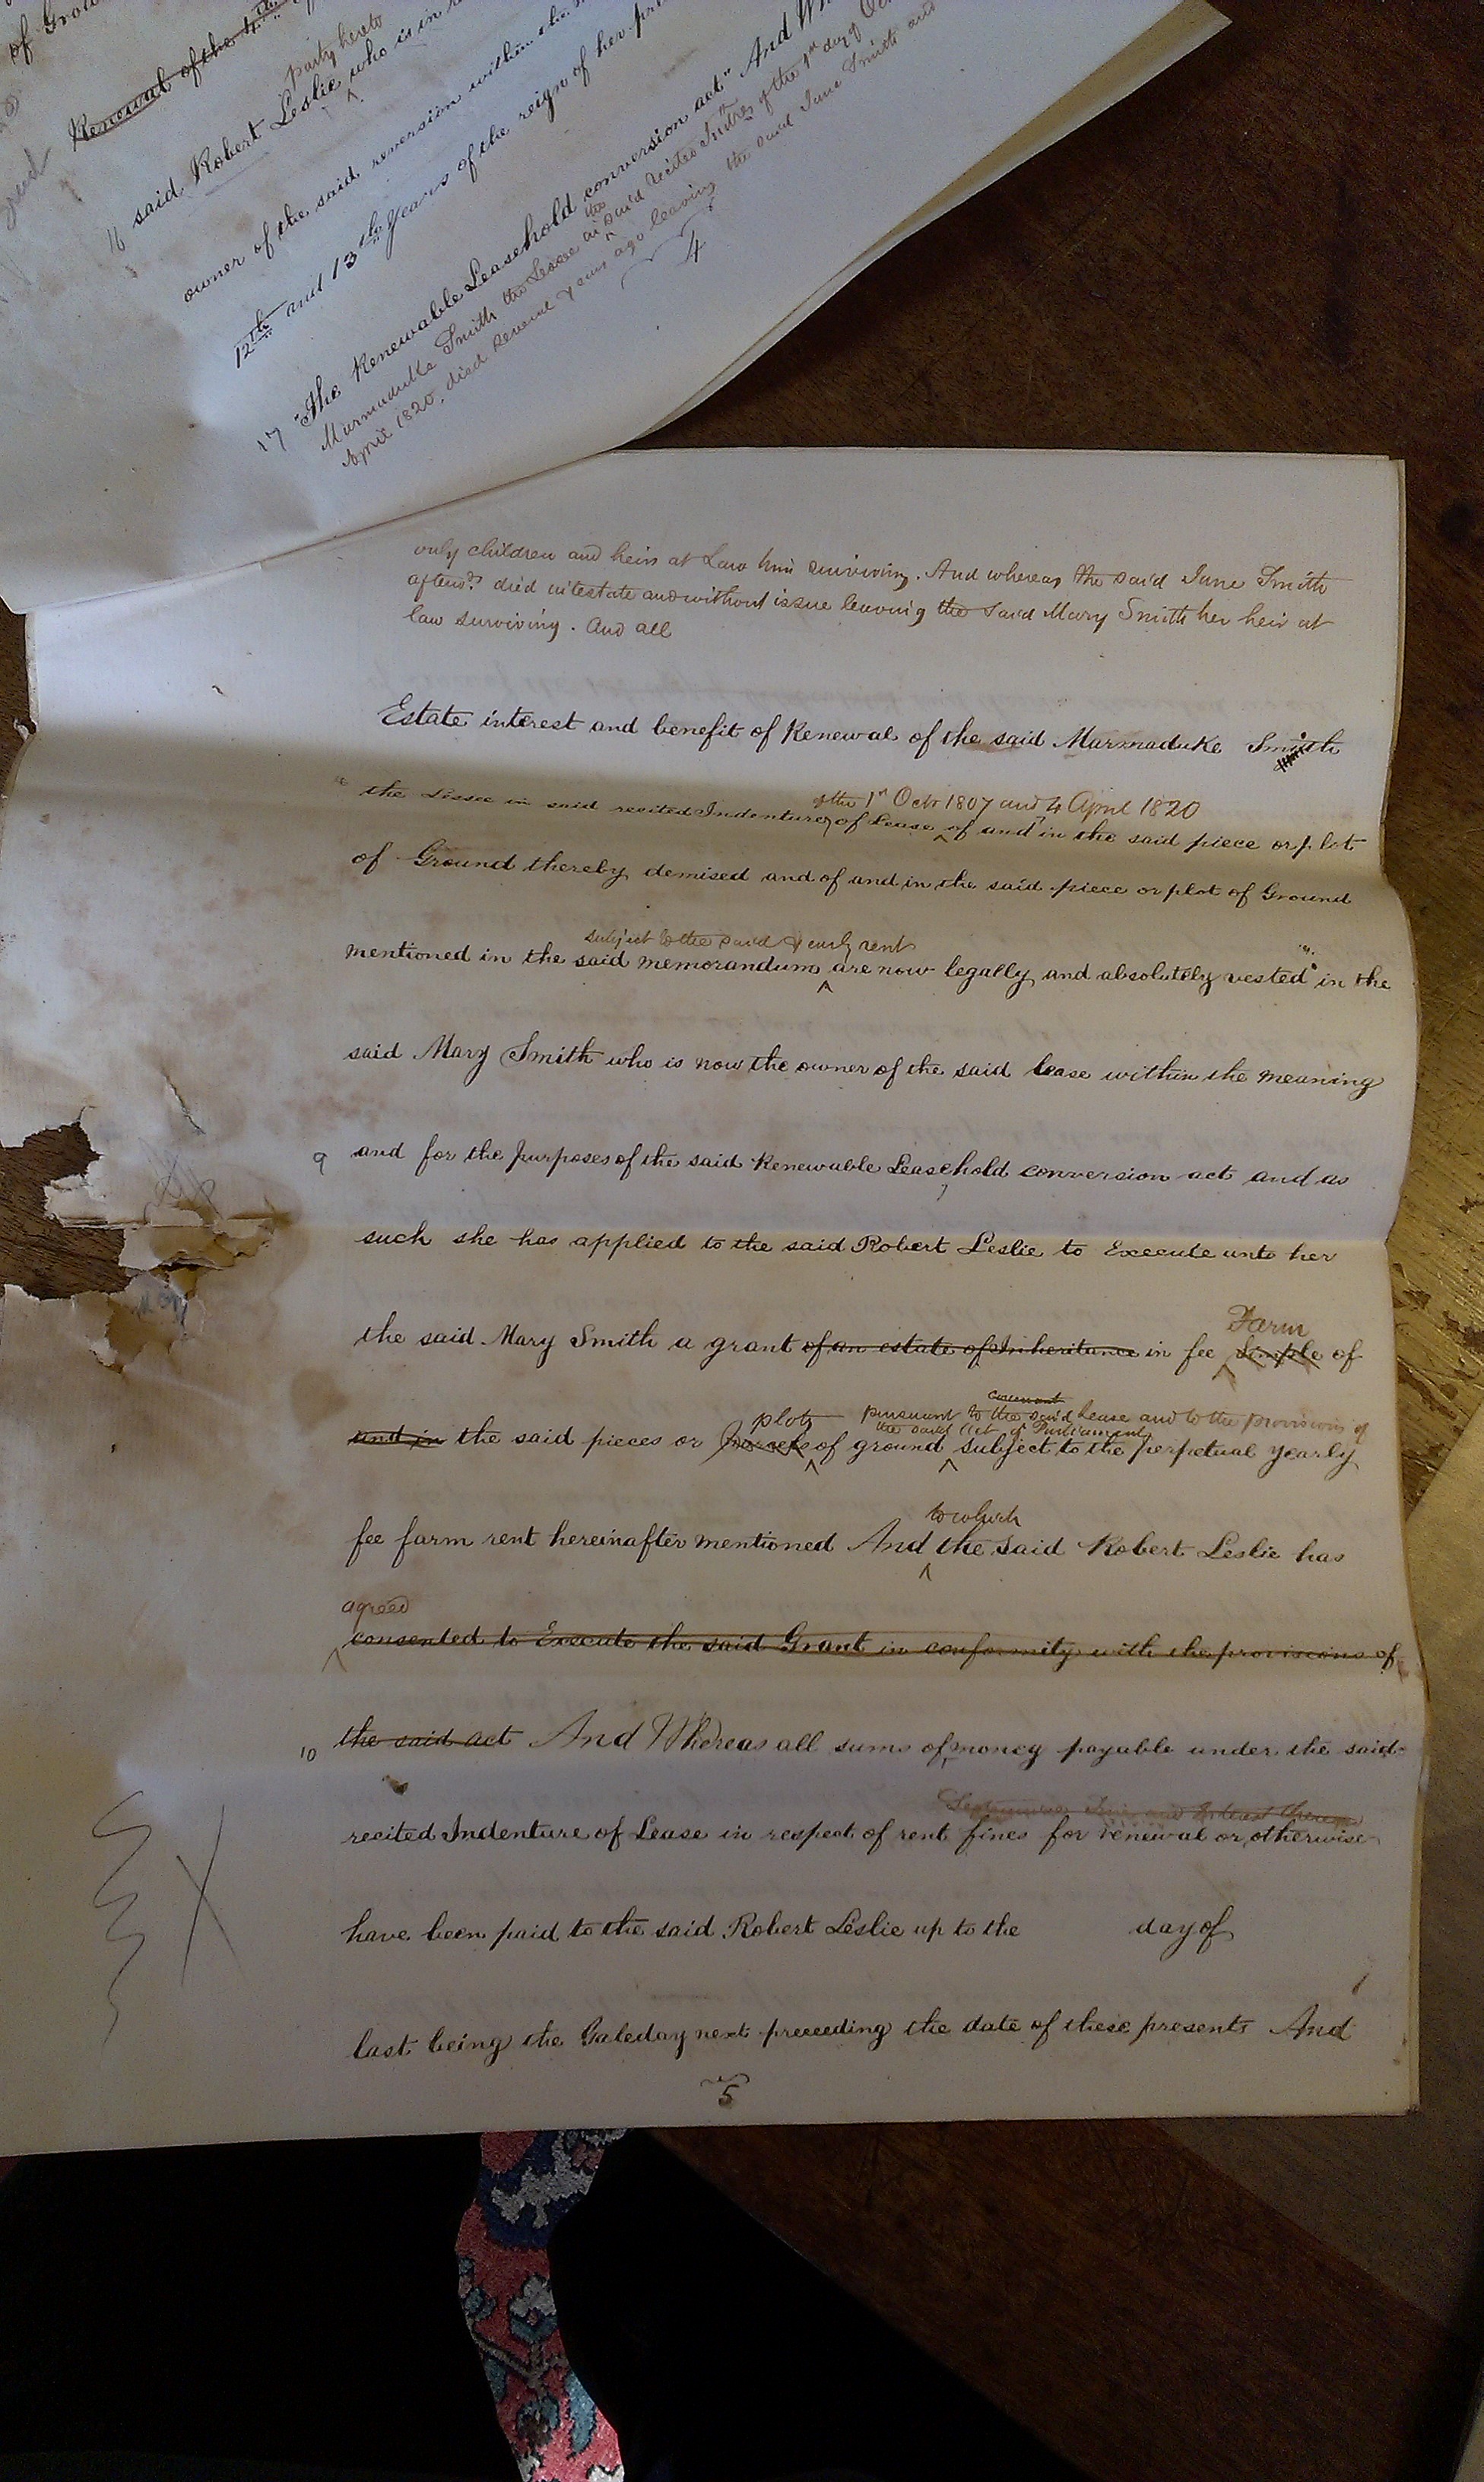 of Grou
Renewal of the 4th
party hereto
said Robert Leslie who is in
owner of the said reversion within the
12th and 13th Years of the reign of her
17 "The Renewable Leasehold conversion act" And
Marmaduke Smith the Lessee in the said recited Indres of the 1st day of Oct
April 1820, died several years ago leaving the said Jane Smith and
4
only children and heirs at Law him surviving. And whereas the said Jane Smith
afterwds died intestate and without issue leaving the said Mary Smith her heir at
law surviving. And all
Estate interest and benefit of Renewal of the said Marmaduke Smith
of the 1st Octr 1807 and 4 April 1820
the Lessee in said recited Indentures of Lease of and in the said piece or plot
of Ground thereby demised and of and in the said piece or plot of Ground
subject to the said yearly rent
mentioned in the said memorandum are now legally and absolutely vested in the
said Mary Smith who is now the owner of the said lease within the meaning
9 and for the purposes of the said Renewable Leasehold conversion act and as
such she has applied to the said Robert Leslie to Execute unto her
Farm
the said Mary Smith a grant of an estate of Inheritance in fee simple of
covenant
plots pursuant to the said Lease and to the provisions of
the said Act of Parliament
and in the said pieces or parcels of ground subject to the perpetual yearly
to which
fee farm rent hereinafter mentioned And the said Robert Leslie has
agreed
consented to Execute the said Grant in conformity with the provisions of
10 the said act And Whereas all sums of money payable under the said
fines and Interest thereon
recited Indenture of Lease in respect of rent fines for renewal or otherwise
have been paid to the said Robert Leslie up to the day of
last being the Galeday next preceeding the date of these presents And
5